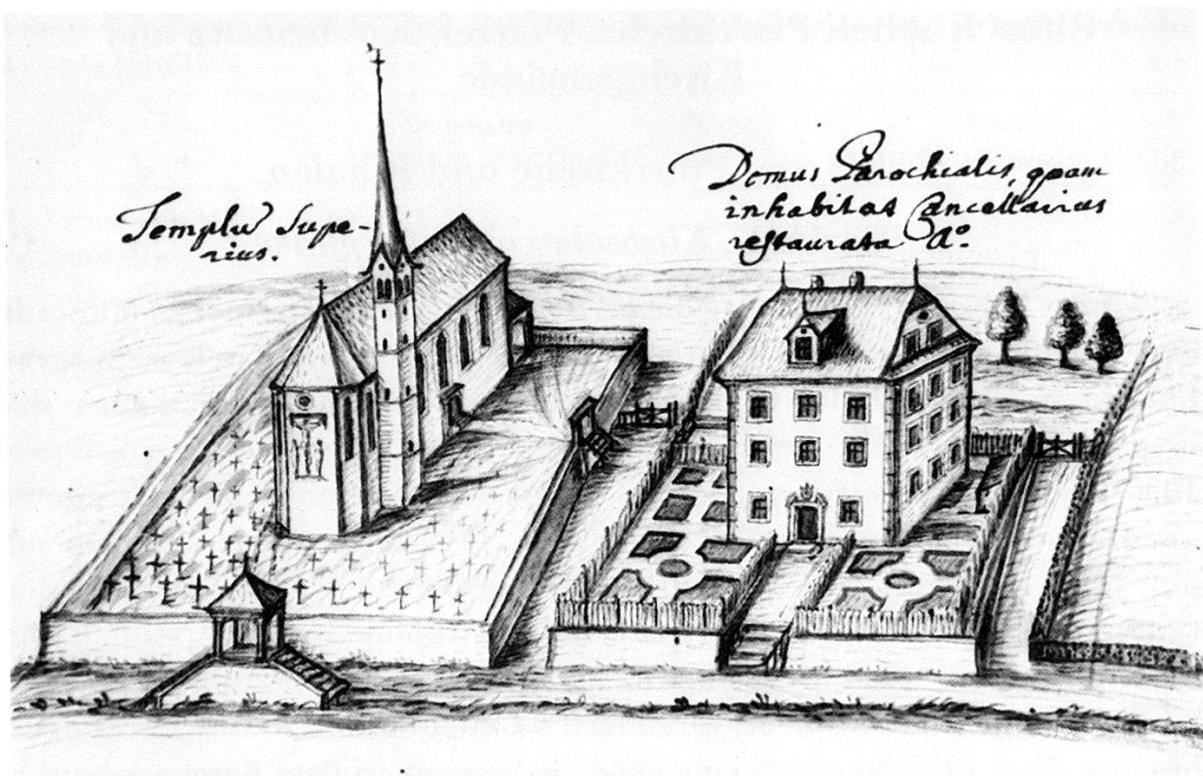 Templū Supe-
rius.
Domus Parochialis, quam
inhabitat Cancellarius
restaurata Aº.